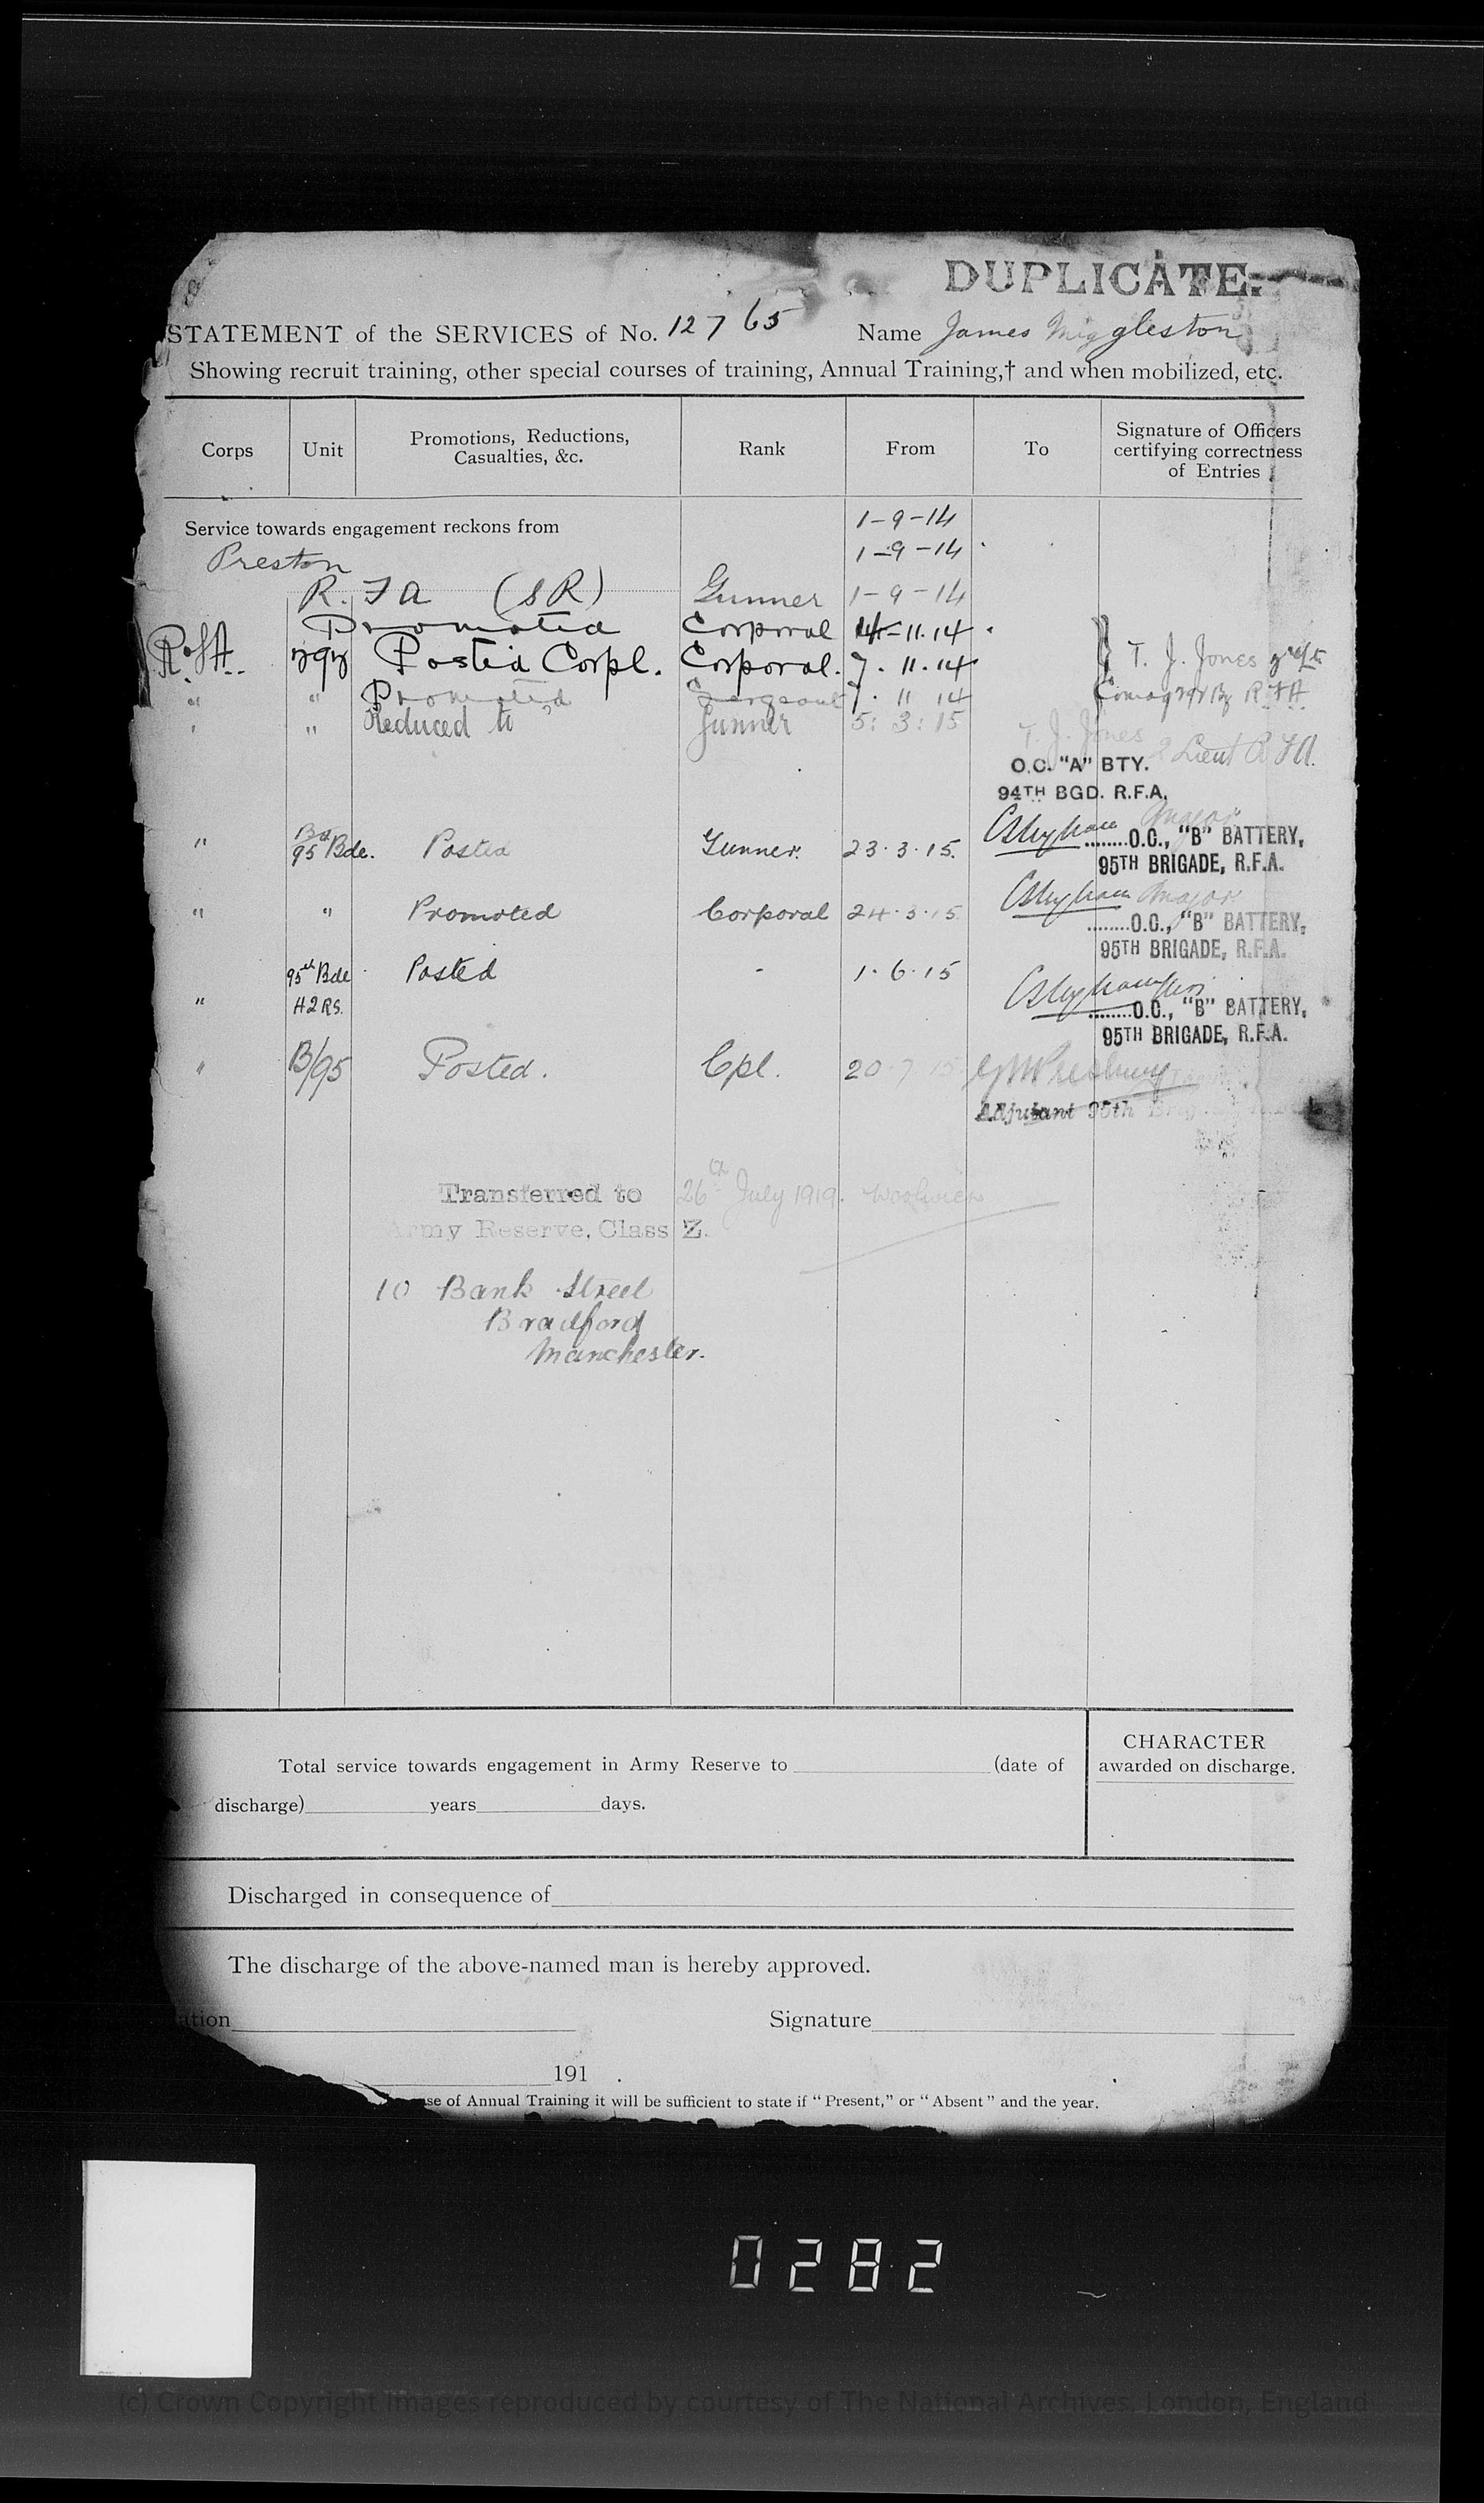 DUPLICATE.
STATEMENT of the SERVICES of No. 12765 Name James Miggleston
Showing recruit training, other special courses of training, Annual Training,† and when mobilized, etc.
Corps Unit Promotions, Reductions, Casualties, &c. Rank From To Signature of Officers certifying correctness of Entries
Service towards engagement reckons from 1-9-14
Preston 1-9-14
R.F A (S R) Gunner 1-9-14
Promoted Corporal 4-11.14
R.F.A. Posted Corpl. Corporal. 7.11.14 T. J. Jones
" " Promoted Sergeant 7. 11 14 R.F.A.
" " Reduced to Gunner 5:3:15 T. J. Jones
2 Lieut R F A.
O.C. "A" BTY.
94TH BGD. R.F.A.
" 95 Bde. Posted Gunner. 23.3.15. Major
........O.C., "B" BATTERY,
95TH BRIGADE, R.F.A.
" " Promoted Corporal 24.3.15 Major
........O.C., "B" BATTERY,
95TH BRIGADE, R.F.A.
95th Bde Posted - 1.6.15
" H2RS.
........O.C., "B" BATTERY,
95TH BRIGADE, R.F.A.
" B/95 Posted. Cpl. 20.7.15
Adjutant 95th Brig
Transferred to 26th July 1919. Woolwich
Army Reserve, Class Z.
10 Bank Street
Bradford
Manchester.
Total service towards engagement in Army Reserve to (date of
discharge) years days.
CHARACTER
awarded on discharge.
Discharged in consequence of
The discharge of the above-named man is hereby approved.
ation Signature
191 .
se of Annual Training it will be sufficient to state if "Present," or "Absent" and the year.
0282
(c) Crown Copyright Images reproduced by courtesy of The National Archives, London, England